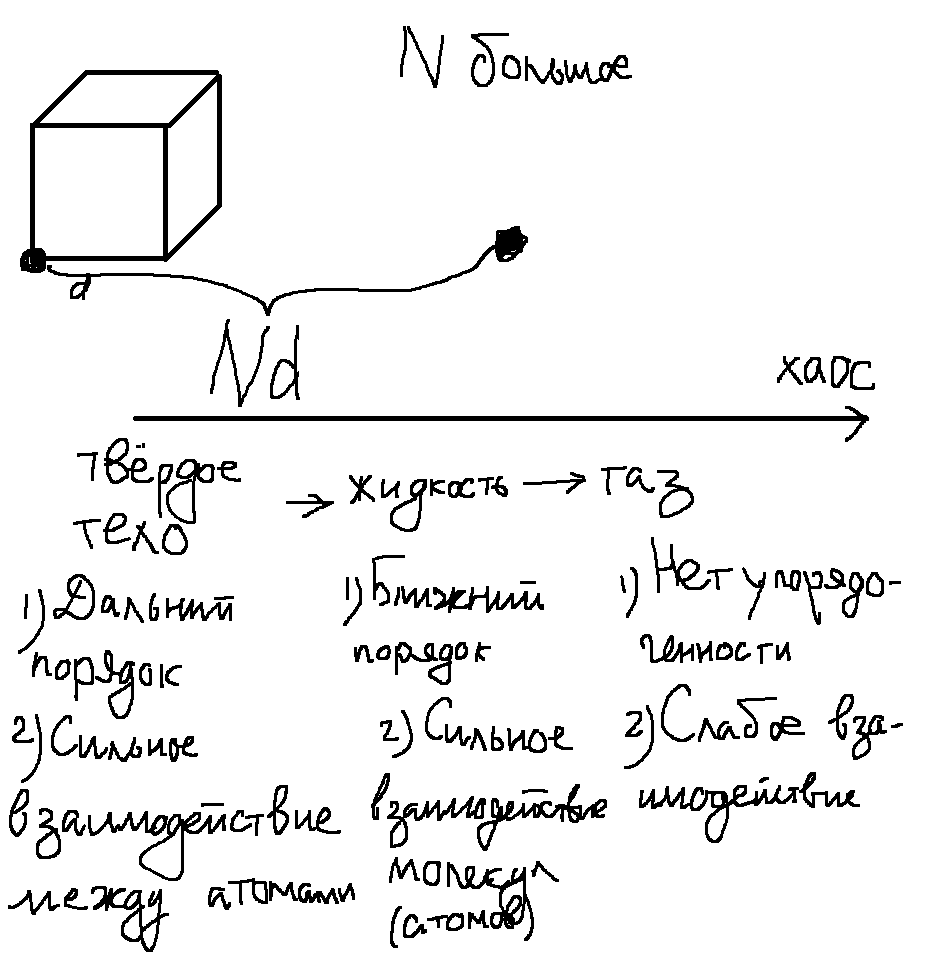 N большое
d
Nd
хаос
твёрдое
тело
→ жидкость → газ
1) Дальний
порядок
2) Сильное
взаимодействие
между атомами
1) Ближний
порядок
2) Сильное
взаимодействие
молекул
(атомов)
1) Нет упорядо-
ченности
2) Слабое вза-
имодействие